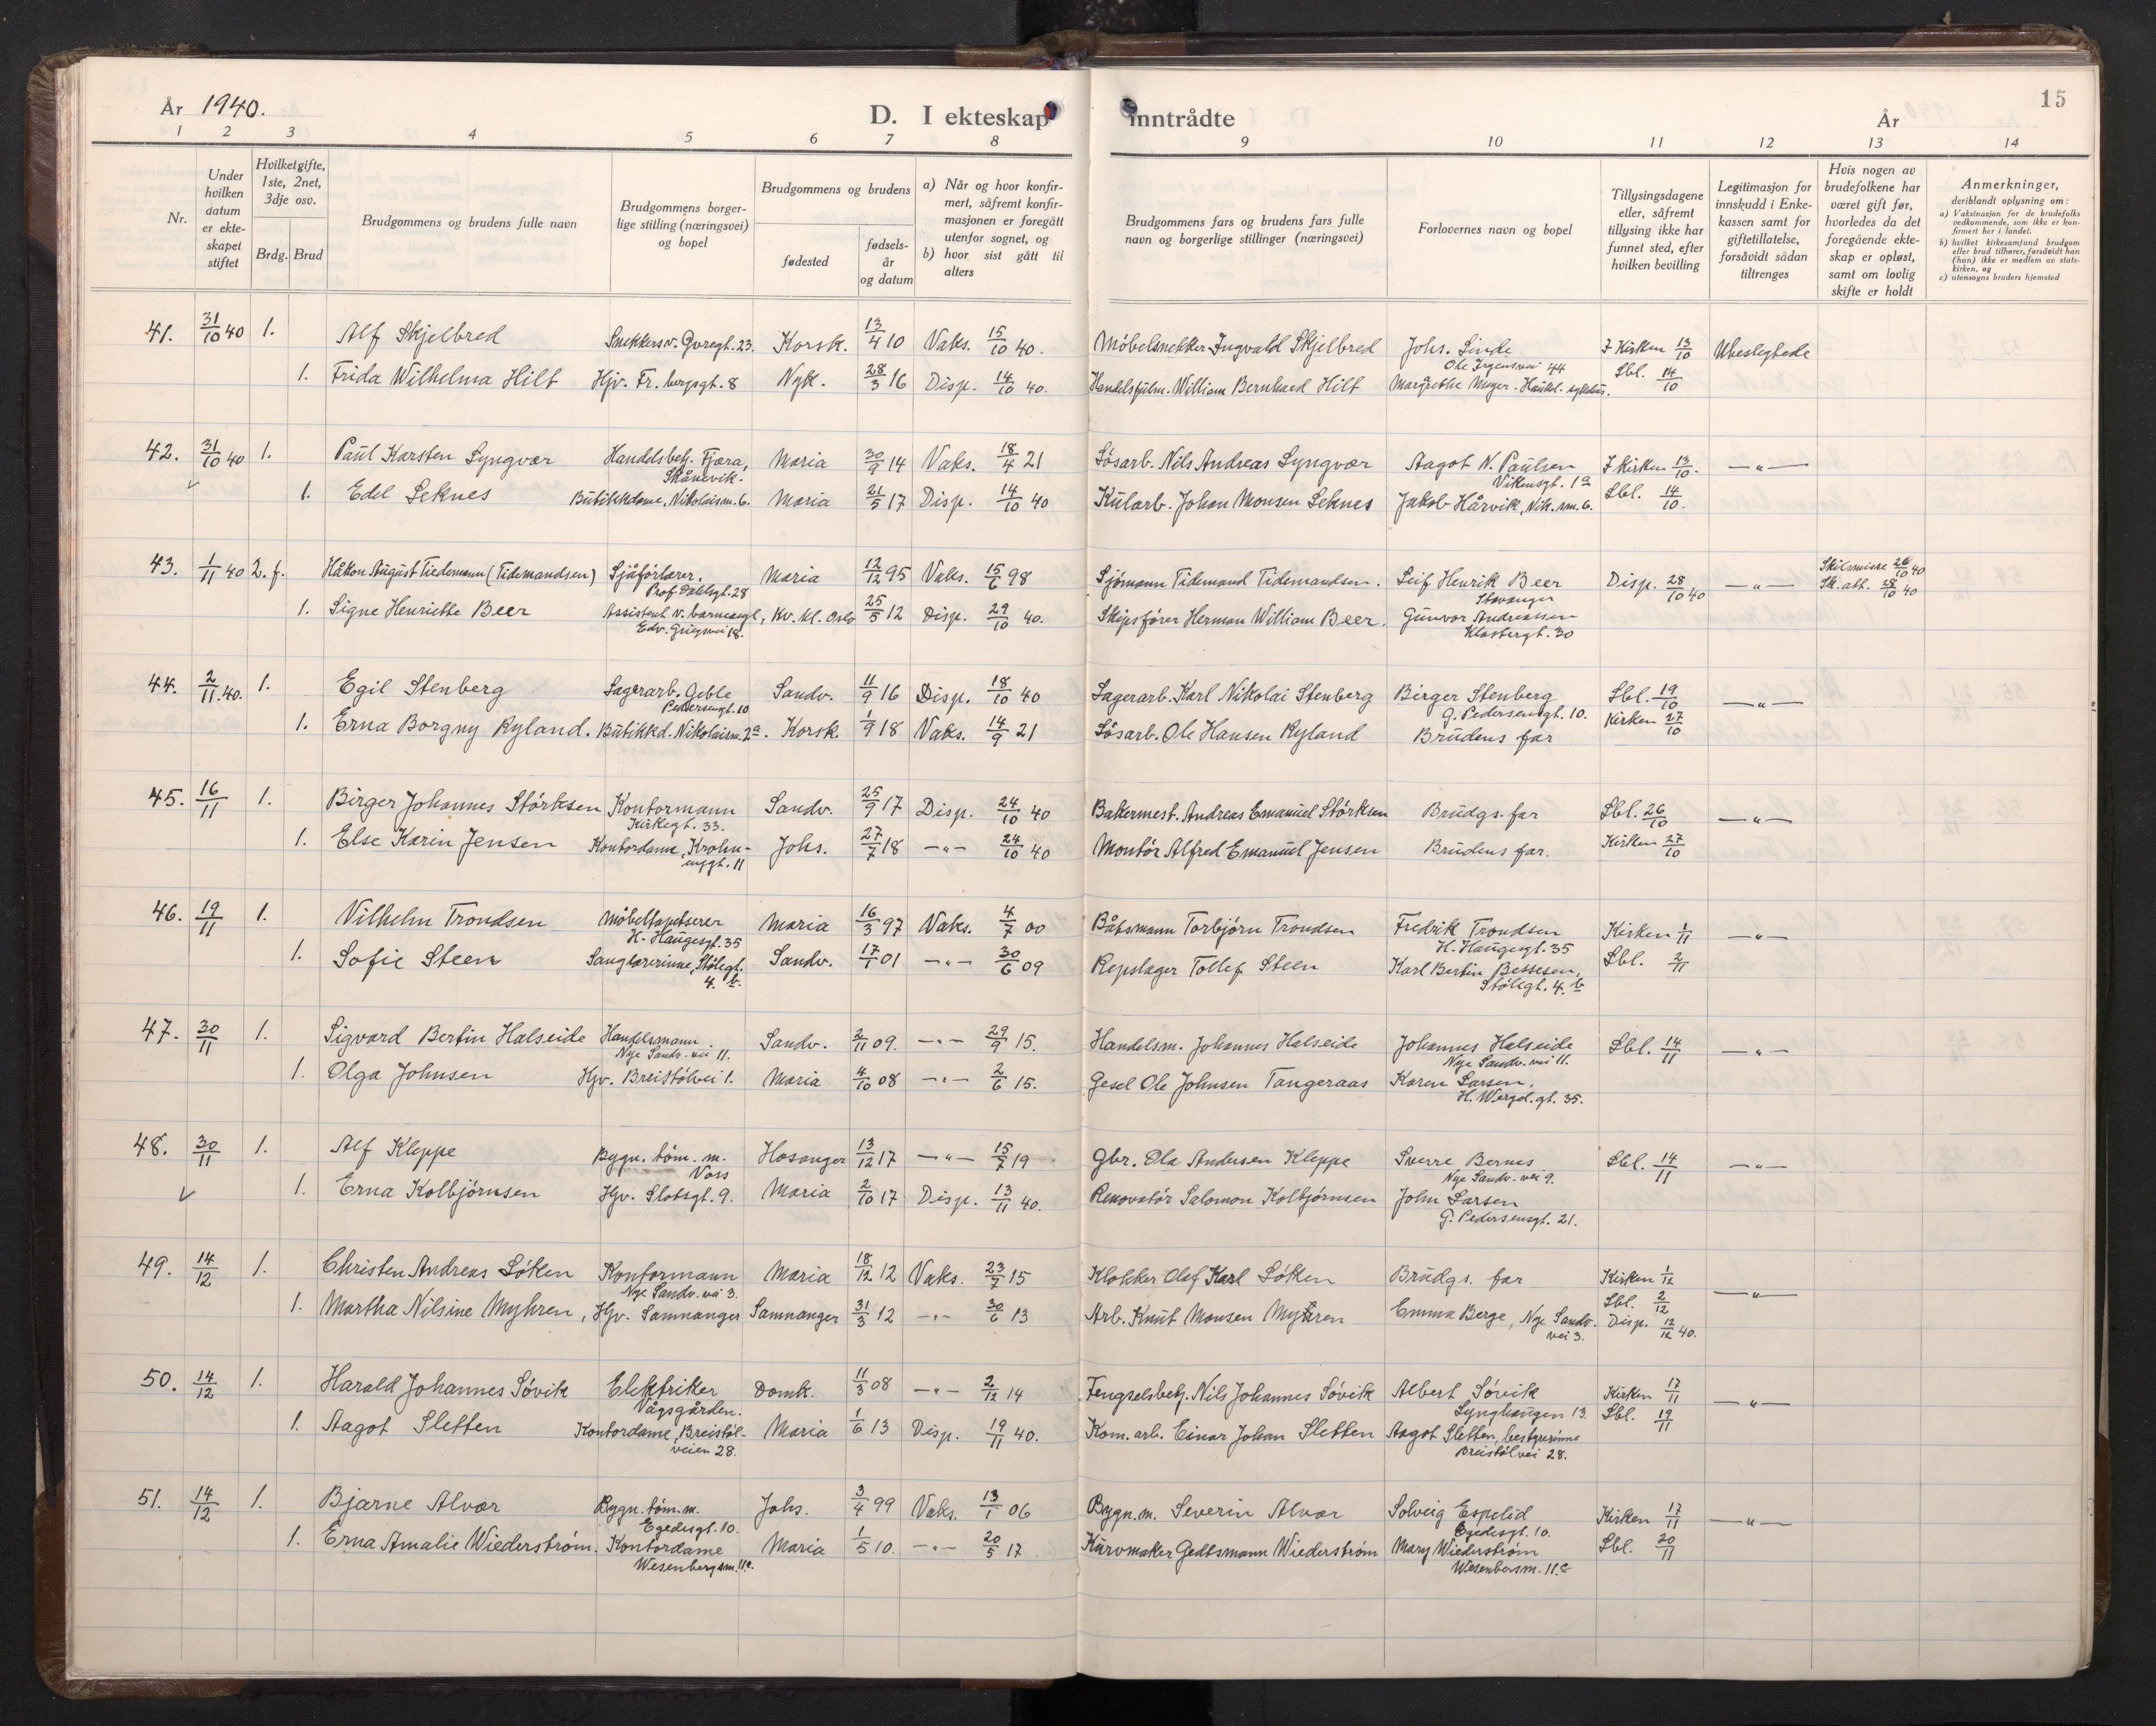 År 1940.
D. I ekteskap inntrådte
År
15
1 2 3 4 5 6 7 8 9 10 11 12 13 14
Nr.
Under hvilken datum er ekteskapet stiftet
Hvilket gifte, 1ste, 2net, 3dje osv.
Brdg. Brud
Brudgommens og brudens fulle navn
Brudgommens borgerlige stilling (næringsvei) og bopel
Brudgommens og brudens
fødested
fødselsår og datum
a) Når og hvor konfirmert, såfremt konfirmasjonen er foregått utenfor sognet, og
b) hvor sist gått til alters
Brudgommens fars og brudens fars fulle navn og borgerlige stillinger (næringsvei)
Forlovernes navn og bopel
Tillysingsdagene eller, såfremt tillysing ikke har funnet sted, efter hvilken bevilling
Legitimasjon for innskudd i Enkekassen samt for giftetillatelse, forsåvidt sådan tiltrenges
Hvis nogen av brudefolkene har været gift før, hvorledes da det foregående ekteskap er opløst, samt om lovlig skifte er holdt
Anmerkninger, deriblandt oplysning om:
a) Vaksinasjon for de brudefolks vedkommende, som ikke er konfirmert her i landet.
b) hvilket kirkesamfund brudgom eller brud tilhører, forsåvidt han (hun) ikke er medlem av statskirken, og
c) utensogns bruders hjemsted
41. 31/10 40 1. Alf Skjelbred Snekkersv. Øvregt. 23. Korsk. 13/4 10 Vaks. 15/10 40. Møbelsnekker Ingvald Skjelbred Johs. Linde Ole Irgensvei 44 I Kirken 13/10 Ubeslegtede
1. Frida Wilhelma Hilt Hjv. Fr. bergsgt. 8 Nyk. 28/3 16 Disp. 14/10 40. Handelsfulm. William Bernhard Hilt Margrethe Meyer. Haukel. sykehus. Lbl. 14/10
42. 31/10 40 1. Paul Karsten Lyngvær Handelsbetj. Fjæra, Skånevik. Maria 30/9 14 Vaks. 18/4 21 Løsarb. Nils Andreas Lyngvær Aagot N. Paulsen Vikensgt. 1a I Kirken 13/10. —„—
1. Edel Seknes Butikkdame, Nikolaism. 6. Maria 21/5 17 Disp. 14/10 40 Kularb. Johan Monsen Seknes Jakob Hårvik, Nik. sm. 6. Lbl. 14/10.
43. 1/11 40 2. f. Håkon August Tiedemann (Tidemandsen) Sjåførlærer. Prof. Dahlsgt. 28 Maria 12/12 95 Vaks. 15/6 98 Sjømann Tidemand Tidemandsen. Leif Henrik Beer Stavanger Disp. 28/10 40 —„— Skilsmisse 26/10 40 Sk. att. 28/10 40
1. Signe Henriette Beer Assistent v. barneasyl, Edv. Griegsvei 18. Kv. kl. Oslo 25/5 12 Disp. 29/10 40. Skipsfører Herman William Beer. Gunvor Andreassen Klostergt. 30
44. 2/11. 40. 1. Egil Stenberg Lagerarb. Geble Pedersensgt. 10 Sandv. 11/9 16 Disp. 18/10 40 Lagerarb. Karl Nikolai Stenberg Birger Stenberg G. Pedersensgt. 10. Lbl. 19/10 —„—
1. Erna Borgny Ryland. Butikkd. Nikolaism. 2a. Korsk. 1/9 18 Vaks. 14/9 21 Løsarb. Ole Hansen Ryland Brudens far Kirken 27/10
45. 16/11 1. Birger Johannes Størksen Kontormann Kirkegt. 33. Sandv. 25/9 17 Disp. 24/10 40 Bakermest. Andreas Emanuel Størksen Brudgs. far Lbl. 26/10 —„—
1. Else Karin Jensen Kontordame, Krohnenggt. 11 Johs. 27/7 18 —„— 24/10 40 Montør Alfred Emanuel Jensen Brudens far. Kirken 27/10
46. 19/11 1. Vilhelm Trondsen Møbeltapetserer H. Haugesgt. 35 Maria 16/3 97 Vaks. 4/7 00 Båtsmann Torbjørn Trondsen Fredrik Trondsen H. Haugesgt. 35 Kirken 1/11 —„—
1. Sofie Steen Sanglærerinne, Stølegt. 4. b. Sandv. 17/1 01 —„— 30/6 09 Repslager Tollef Steen Karl Bertin Bessesen, Stølegt. 4. b Lbl. 2/11
47. 30/11 1. Sigvard Bertin Halseide Handelsmann Nye Sandv. vei 11. Sandv. 2/11 09. —„— 29/9 15. Handelsm. Johannes Halseide Johannes Halseide Nye Sandv. vei 11. Lbl. 14/11 —„—
1. Olga Johnsen Hjv. Breistølvei 1. Maria 4/10 08 —„— 2/6 15. Gesel Ole Johnsen Tangeraas Karen Larsen. H. Wergel. gt. 35.
48. 30/11 1. Alf Kleppe Bygn. tøm. m. Voss Hosanger 13/12 17 —„— 15/7 19 Gbr. Ola Andersen Kleppe Sverre Bernes Nye Sandv. vei 9. Lbl. 14/11 —„—
1. Erna Kolbjørnsen Hjv. Slotsgt. 9. Maria 2/10 17 Disp. 13/11 40. Renovatør Salomon Kolbjørnsen John Larsen G. Pedersensgt. 21.
49. 14/12 1. Christen Andreas Løken Kontormann Nye Sandv. vei 3. Maria 18/12 12 Vaks. 23/7 15 Klokker Olaf Karl Løken Brudgs. far Kirken 1/12 Lbl. 2/12 —„—
1. Martha Nilsine Myhren, Hjv. Samnanger Samnanger 31/3 12 —„— 30/6 13 Arb. Knut Monsen Myhren Emma Berge, Nye Sandv. vei 3. Disp. 12/12 40.
50. 14/12 1. Harald Johannes Søvik Elektriker Vågsgården. Domk. 11/3 08 —„— 2/12 14 Fengselsbetj. Nils Johannes Søvik Albert Søvik Lynghaugen 13. Kirken 17/11 —„—
1. Aagot Sletten Kontordame, Breistølveien 28. Maria 1/6 13 Disp. 19/11 40. Kom. arb. Einar Johan Sletten Aagot Sletten, bestyrerinne Breistølvei 28. Lbl. 19/11
51. 14/12 1. Bjarne Alvær Bygn. tøm. m. Egedesgt. 10. Johs. 3/4 99 Vaks. 13/1 06 Bygn. m. Severin Alvær Solveig Espelid Egedesgt. 10. Kirken 17/11 —„—
1. Erna Amalie Wiederstrøm. Kontordame Wesenbergsm. 11c. Maria 1/5 10. —„— 20/5 17 Kurvmaker Gedtsmann Wiederstrøm Mary Wiederstrøm Wesenbersm. 11c Lbl. 20/11